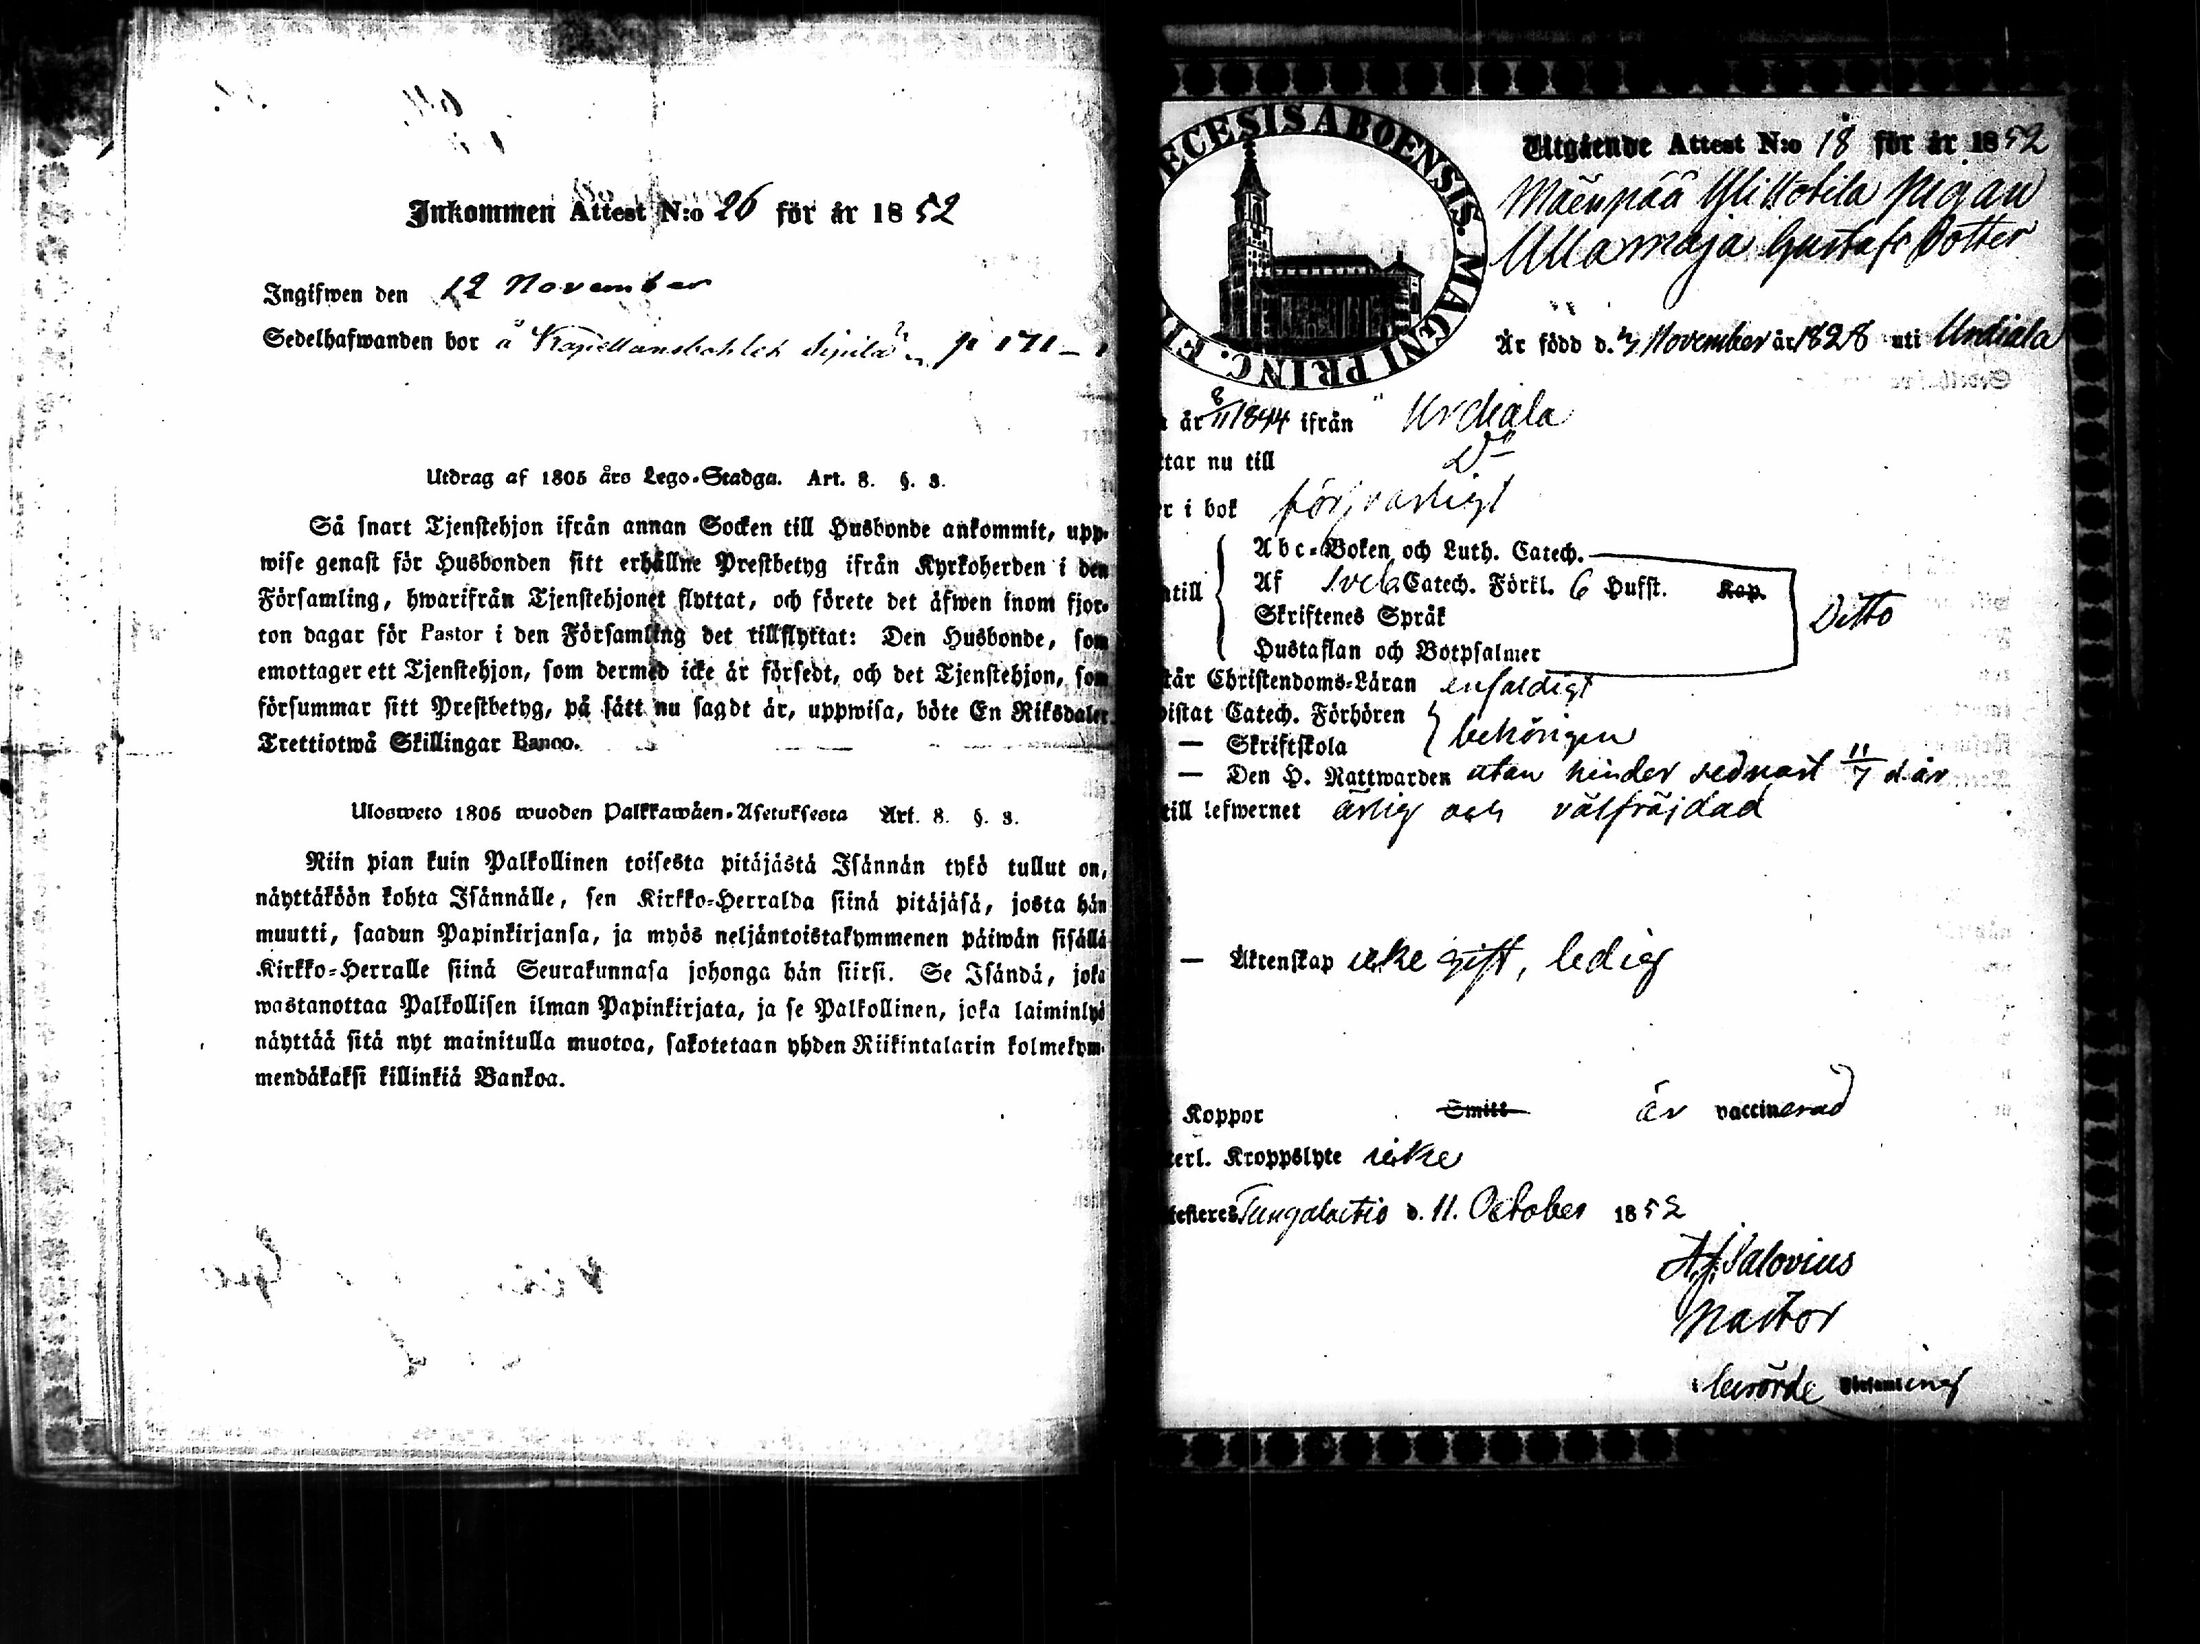 Inkommen Attest N:o 26 för år 1852
Ingifwen den 12 November
Sedelhafwanden bor å Kapellansbohlet Sipilä p 171
Utdrag af 1805 års Lego-Stadga. Art. 8. §. 3.
Så snart Tjenstehjon ifrån annan Socken till Husbonde ankommit, upp-
wise genast för Husbonden sitt erhållne Prestbetyg ifrån Kyrkoherden i den
Församling, hwarifrån Tjenstehjonet flyttat, och förete det äfwen inom fjor-
ton dagar för Pastor i den Församling det tillflyttat: Den Husbonde, som
emottager ett Tjenstehjon, som dermed icke är försedt, och det Tjenstehjon, som
försummar sitt Prestbetyg, på sätt nu sagdt är, uppwisa, böte En Riksdaler
Trettiotwå Skillingar Banco.
Ulosweto 1805 wuoden Palkkawäen-Asetuksesta Art. 8. §. 3.
Niin pian kuin Palkollinen toisesta pitäjästä Isännän tykö tullut on,
näyttäköön kohta Isännälle, sen Kirkko-Herralda siinä pitäjäsä, josta hän
muutti, saadun Papinkirjansa, ja myös neljäntoistakymmenen päiwän sisällä
Kirkko-Herralle siinä Seurakunnasa johonga hän siirsi. Se Isändä, joka
wastanottaa Palkollisen ilman Papinkirjata, ja se Palkollinen, joka laiminlyö
näyttää sitä nyt mainitulla muotoa, sakotetaan yhden Riikintalarin kolmekym-
mendäkaksi killinkiä Bankoa.
ECESIS ABOENSIS. MAGNI PRINC. FI
Utgående Attest N:o 18 för år 1852
Mäenpää Yli Hobila pigan
Ulla Maja Gustafs Dotter
Är född d. November år 1828 uti Urdiala
år 8/11 1844 ifrån Urdiala
ttar nu till Do
r i bok försvarligt
Abc-Boken och Luth. Catech.
till Af Sveb. Catech. Förkl. 6 Hufst. Kap.
Skriftenes Språk
Ditto
Hustaflan och Botpsalmer
tår Christendoms-Läran enfaldigt
istat Catech. Förhören
— Skriftskola
behörigen
— Den H. Nattwarden utan hinder sednast 11/7 d. år
till lefwernet ärlig och välfräjdad
— Äktenskap icke gift, ledig
Koppor Smitt är vaccinerad
terl. Kroppslyte icke
testeres Tungalaitio d. 11. October 1852
Salovius
Pastor
i berörde Församling